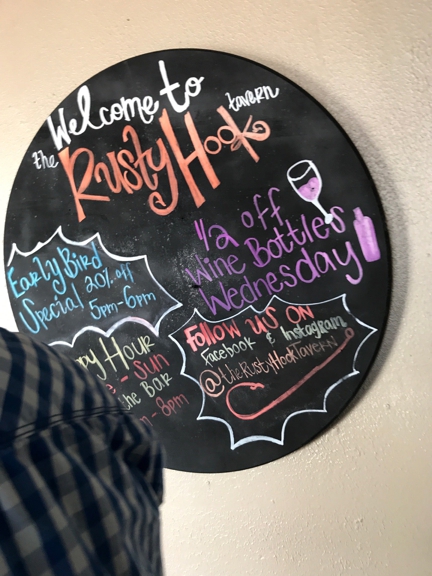 Welcome to
the Rusty Hook tavern
Early Bird
Special 20% off
5pm-6pm
1/2 off
Wine Bottles
Wednesday
Hour
- Sun
the Bar
- 8pm
Follow us on
Facebook & Instagram
@theRustyHookTavern